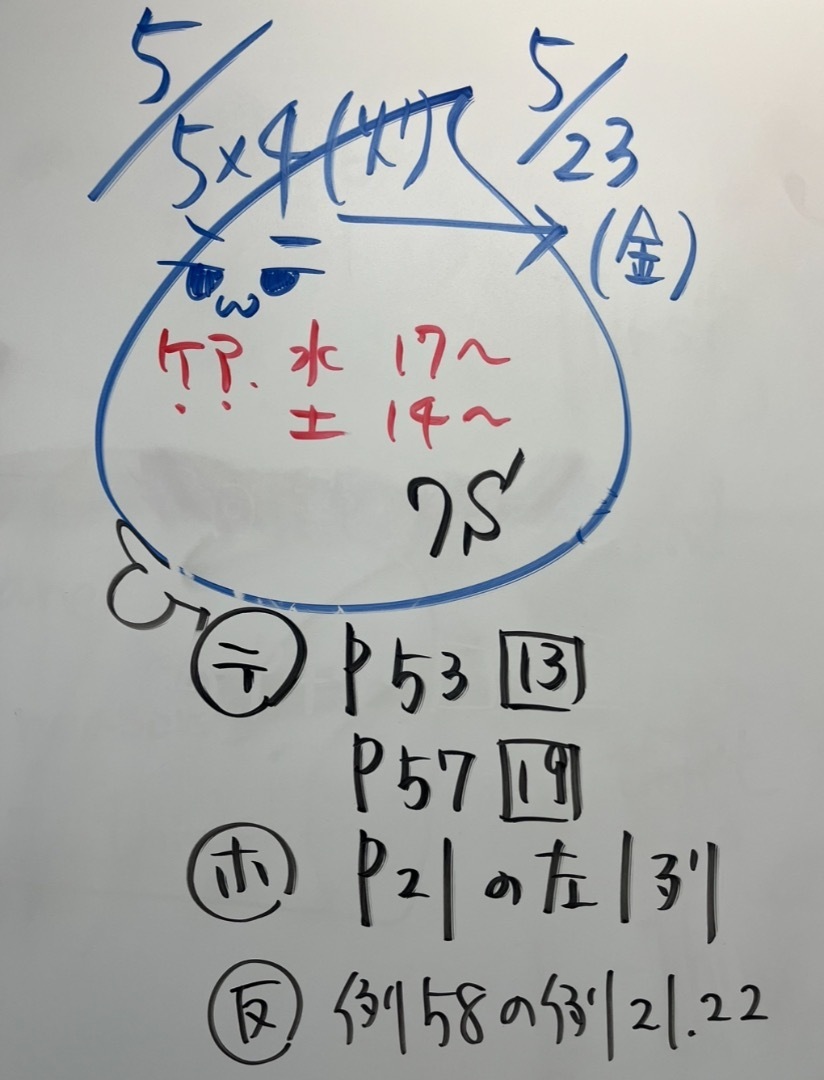 5/5×4(火) → 5/23
(金)
水 17〜
土 14〜
テ P53 13
P57 19
ホ P21の左1列
反 例58の例21.22